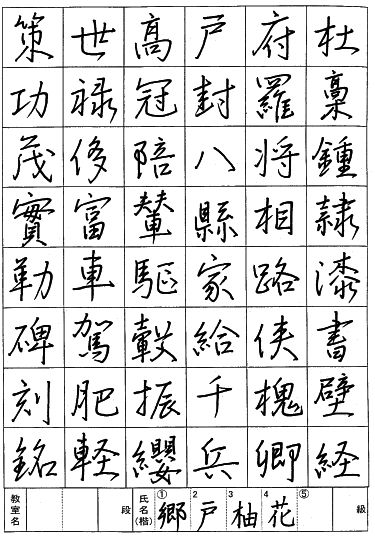 杜稾鍾隷漆書壁経
府羅将相路侠槐卿
戸封八縣家給千兵
高冠陪輦驅轂振纓
世禄侈富車駕肥軽
策功茂實勒碑刻銘
教室名 段 氏名(楷) ①郷 2戸 3柚 4花 ⑤ 級